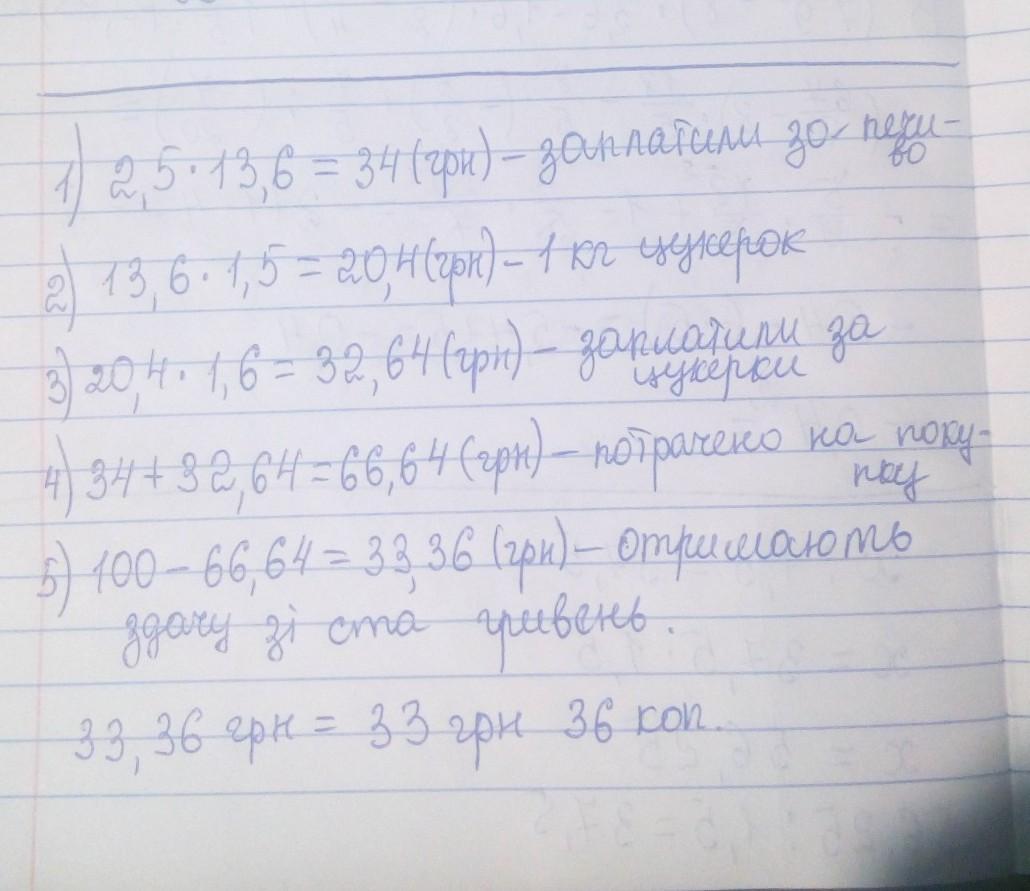 1) 2,5 · 13,6 = 34 (грн) – заплатили за печи-
во
2) 13,6 · 1,5 = 20,4 (грн) – 1 кг цукерок
3) 20,4 · 1,6 = 32,64 (грн) – заплатили за
цукерки
4) 34 + 32,64 = 66,64 (грн) – потрачено на поку-
пку
5) 100 – 66,64 = 33,36 (грн) – отримають
здачу зі ста гривень.
33,36 грн = 33 грн 36 коп.